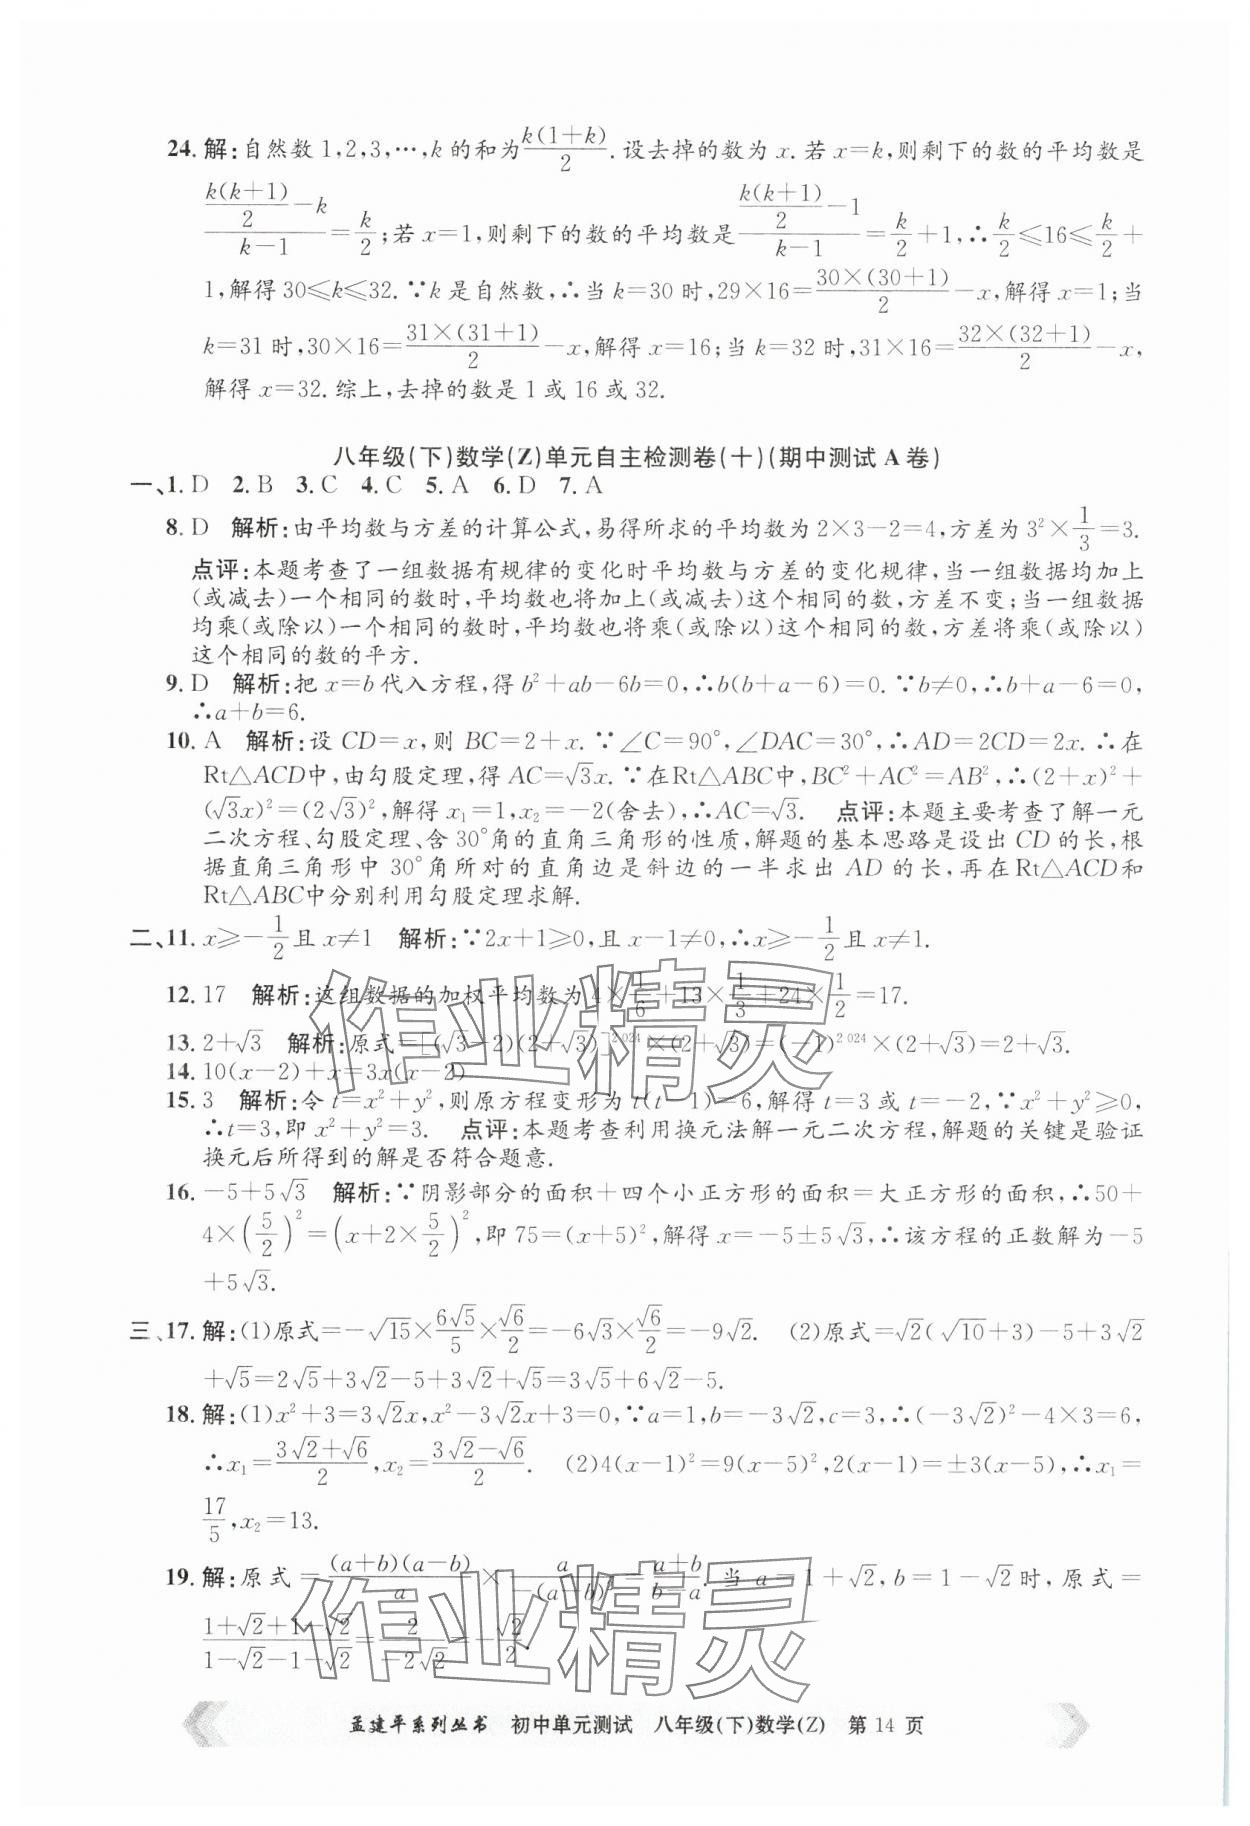 24. 解:自然数 1,2,3,…,k 的和为 k(1+k)/2 .设去掉的数为 x. 若 x=k,则剩下的数的平均数是
(k(k+1)/2 −k)/(k−1) = k/2 ;若 x=1,则剩下的数的平均数是 (k(k+1)/2 −1)/(k−1) = k/2 +1,∴ k/2 ≤16≤ k/2 +
1,解得 30≤k≤32. ∵k 是自然数,∴当 k=30 时,29×16= 30×(30+1)/2 −x,解得 x=1;当
k=31 时,30×16= 31×(31+1)/2 −x,解得 x=16;当 k=32 时,31×16= 32×(32+1)/2 −x,
解得 x=32. 综上,去掉的数是 1 或 16 或 32.
八年级(下)数学(Z)单元自主检测卷(十)(期中测试 A 卷)
一、1. D 2. B 3. C 4. C 5. A 6. D 7. A
8. D 解析:由平均数与方差的计算公式,易得所求的平均数为 2×3−2=4,方差为 3²× 1/3 =3.
点评:本题考查了一组数据有规律的变化时平均数与方差的变化规律,当一组数据均加上
(或减去)一个相同的数时,平均数也将加上(或减去)这个相同的数,方差不变;当一组数据
均乘(或除以)一个相同的数时,平均数也将乘(或除以)这个相同的数,方差将乘(或除以)
这个相同的数的平方.
9. D 解析:把 x=b 代入方程,得 b²+ab−6b=0,∴b(b+a−6)=0. ∵b≠0,∴b+a−6=0,
∴a+b=6.
10. A 解析:设 CD=x,则 BC=2+x. ∵∠C=90°,∠DAC=30°,∴AD=2CD=2x. ∴在
Rt△ACD中,由勾股定理,得 AC=√3x. ∵在Rt△ABC中,BC²+AC²=AB²,∴(2+x)²+
(√3x)²=(2√3)²,解得 x₁=1,x₂=−2(舍去),∴AC=√3. 点评:本题主要考查了解一元
二次方程、勾股定理、含 30°角的直角三角形的性质,解题的基本思路是设出 CD 的长,根
据直角三角形中 30°角所对的直角边是斜边的一半求出 AD 的长,再在Rt△ACD和
Rt△ABC中分别利用勾股定理求解.
二、11. x≥− 1/2 且 x≠1 解析:∵2x+1≥0,且 x−1≠0,∴x≥− 1/2 且 x≠1.
12. 17 解析:这组数据的加权平均数为 4× 1/6 +13× 1/3 +24× 1/2 =17.
13. 2+√3 解析:原式=[(√3−2)(2+√3)]²⁰²⁴×(2+√3)=(−1)²⁰²⁴×(2+√3)=2+√3.
14. 10(x−2)+x=3x(x−2)
15. 3 解析:令 t=x²+y²,则原方程变形为 t(t−1)=6,解得 t=3 或 t=−2,∵x²+y²≥0,
∴t=3,即 x²+y²=3. 点评:本题考查利用换元法解一元二次方程,解题的关键是验证
换元后所得到的解是否符合题意.
16. −5+5√3 解析:∵阴影部分的面积+四个小正方形的面积=大正方形的面积,∴50+
4×(5/2)²=(x+2× 5/2)²,即 75=(x+5)²,解得 x=−5±5√3,∴该方程的正数解为−5
+5√3.
三、17. 解:(1)原式=−√15× 6√5/5 × √6/2 =−6√3× √6/2 =−9√2. (2)原式=√2(√10+3)−5+3√2
+√5=2√5+3√2−5+3√2+√5=3√5+6√2−5.
18. 解:(1)x²+3=3√2x,x²−3√2x+3=0,∵a=1,b=−3√2,c=3,∴(−3√2)²−4×3=6,
∴x₁= (3√2+√6)/2 ,x₂= (3√2−√6)/2 . (2)4(x−1)²=9(x−5)²,2(x−1)=±3(x−5),∴x₁=
17/5 ,x₂=13.
19. 解:原式= (a+b)(a−b)/a × a/(−(a−b)²) = (a+b)/(b−a) . 当 a=1+√2,b=1−√2时,原式=
(1+√2+1−√2)/(1−√2−1−√2) = 2/(−2√2) =− √2/2 .
作业精灵
作业精灵
孟建平系列丛书 初中单元测试 八年级(下)数学(Z) 第 14 页